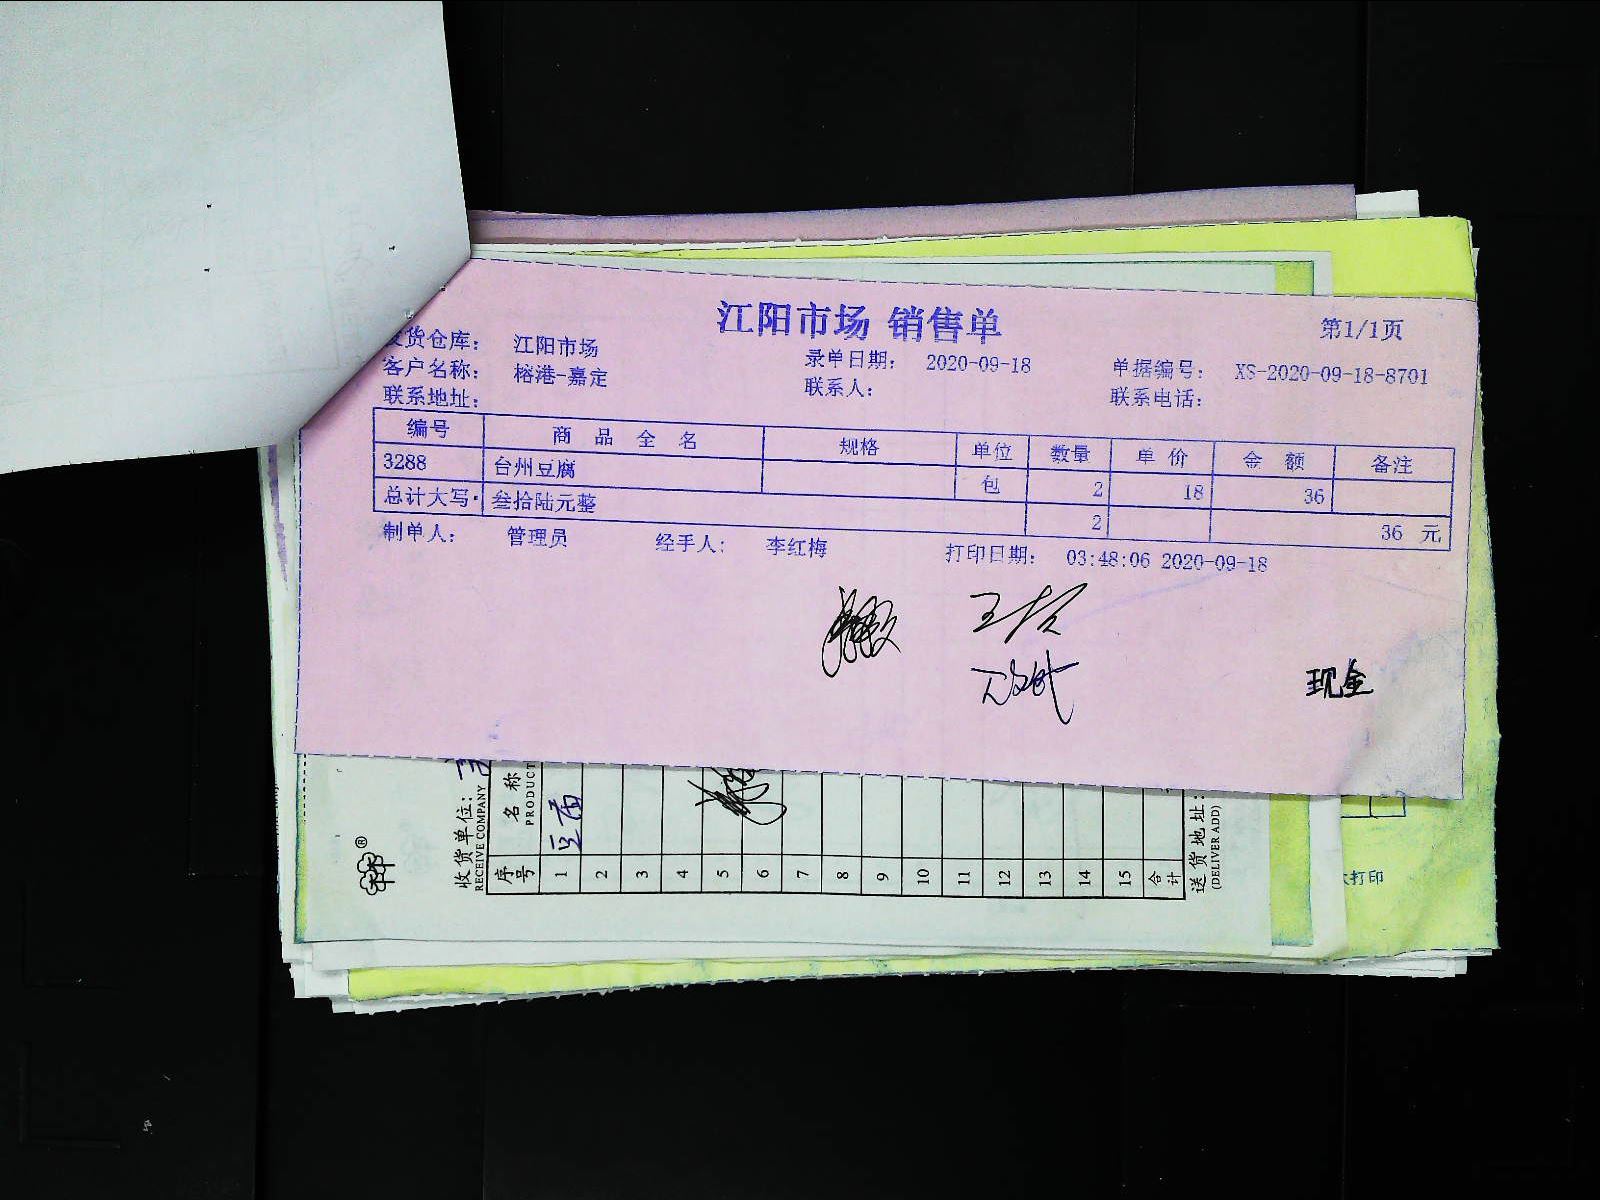 江阳市场 销售单
第1/1页
发货仓库： 江阳市场 录单日期： 2020-09-18 单据编号： XS-2020-09-18-8701
客户名称： 榕港-嘉定 联系人： 联系电话：
联系地址：
编号 商 品 全 名 规格 单位 数量 单 价 金 额 备注
3288 台州豆腐 包 2 18 36
总计大写· 叁拾陆元整 2 36 元
制单人： 管理员 经手人： 李红梅 打印日期： 03:48:06 2020-09-18
现金
收货单位：
RECEIVE COMPANY
序号 名 称
PRODUCT
1
2
3
4
5
6
7
8
9
10
11
12
13
14
15
合计
送货地址：
(DELIVER ADD)
打印